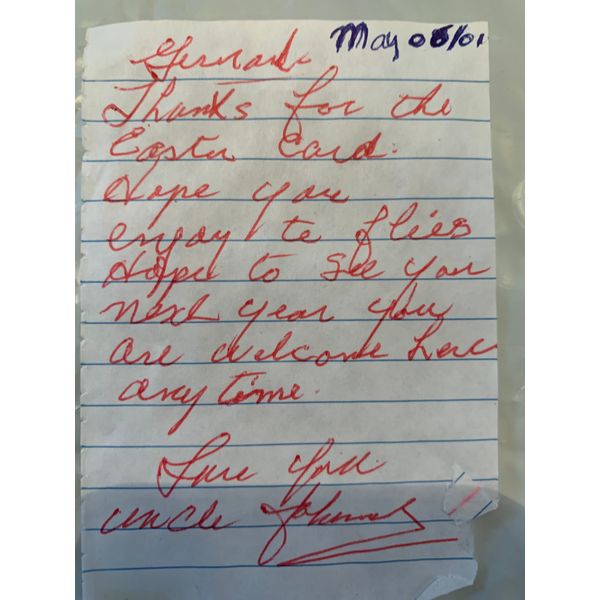 May 08/01
Thanks for the
Easter Card.
Hope you
enjoy te flies
Hope to see you
next year you
are welcome here
any time.
Love you
uncle